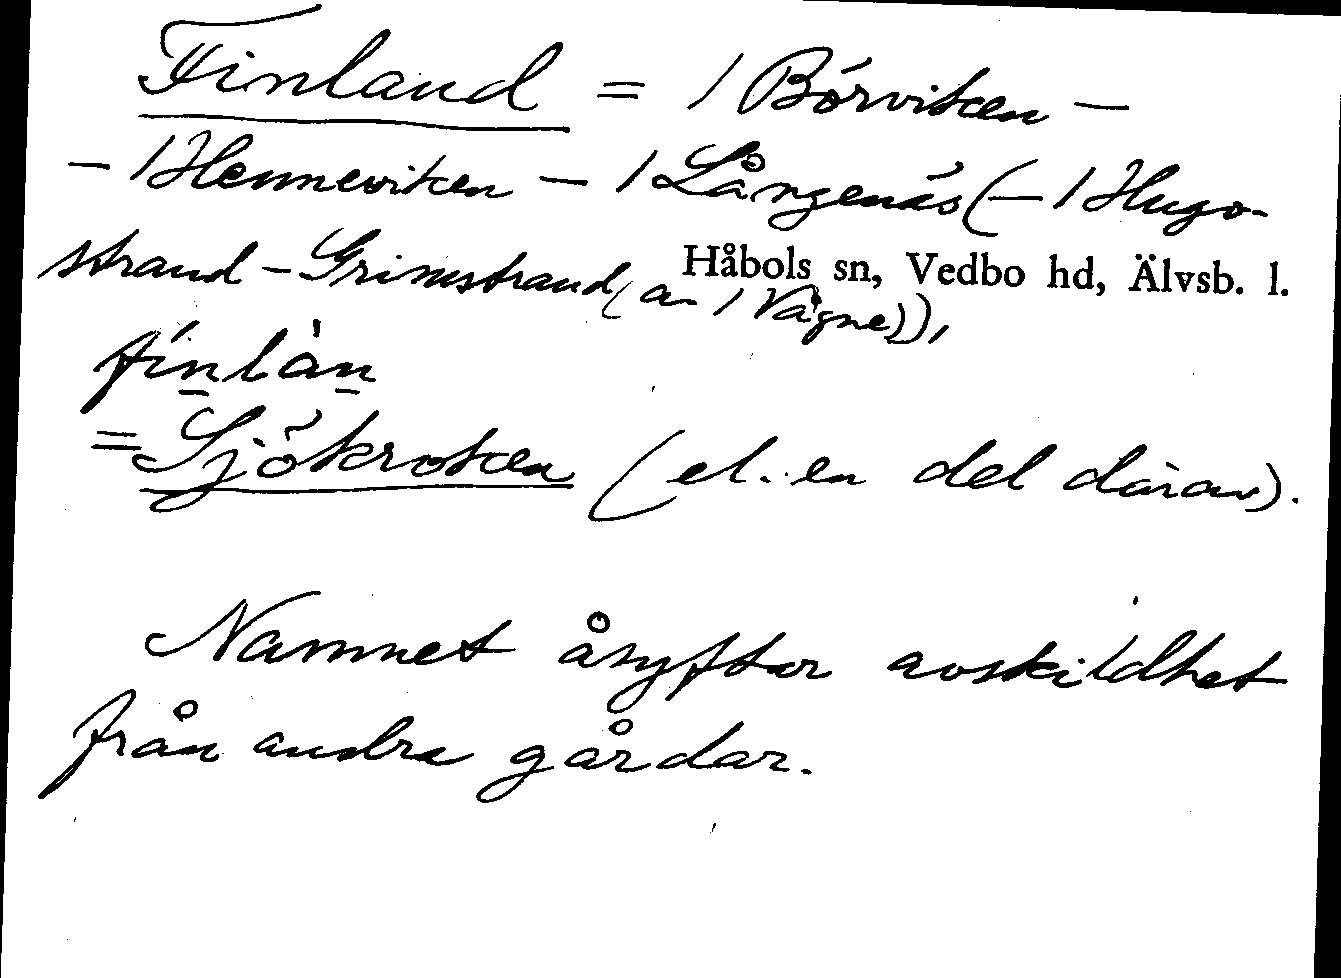 Finland = / Börviken –
– / Henneviken – / Långenäs (– / Hugo-
strand – Grimstrand (av / Vågne)),
Håbols sn, Vedbo hd, Älvsb. l.
finlàn
= Sjökroken (el. en del därav).
Namnet åsyftar avskildhet
från andra gårdar.